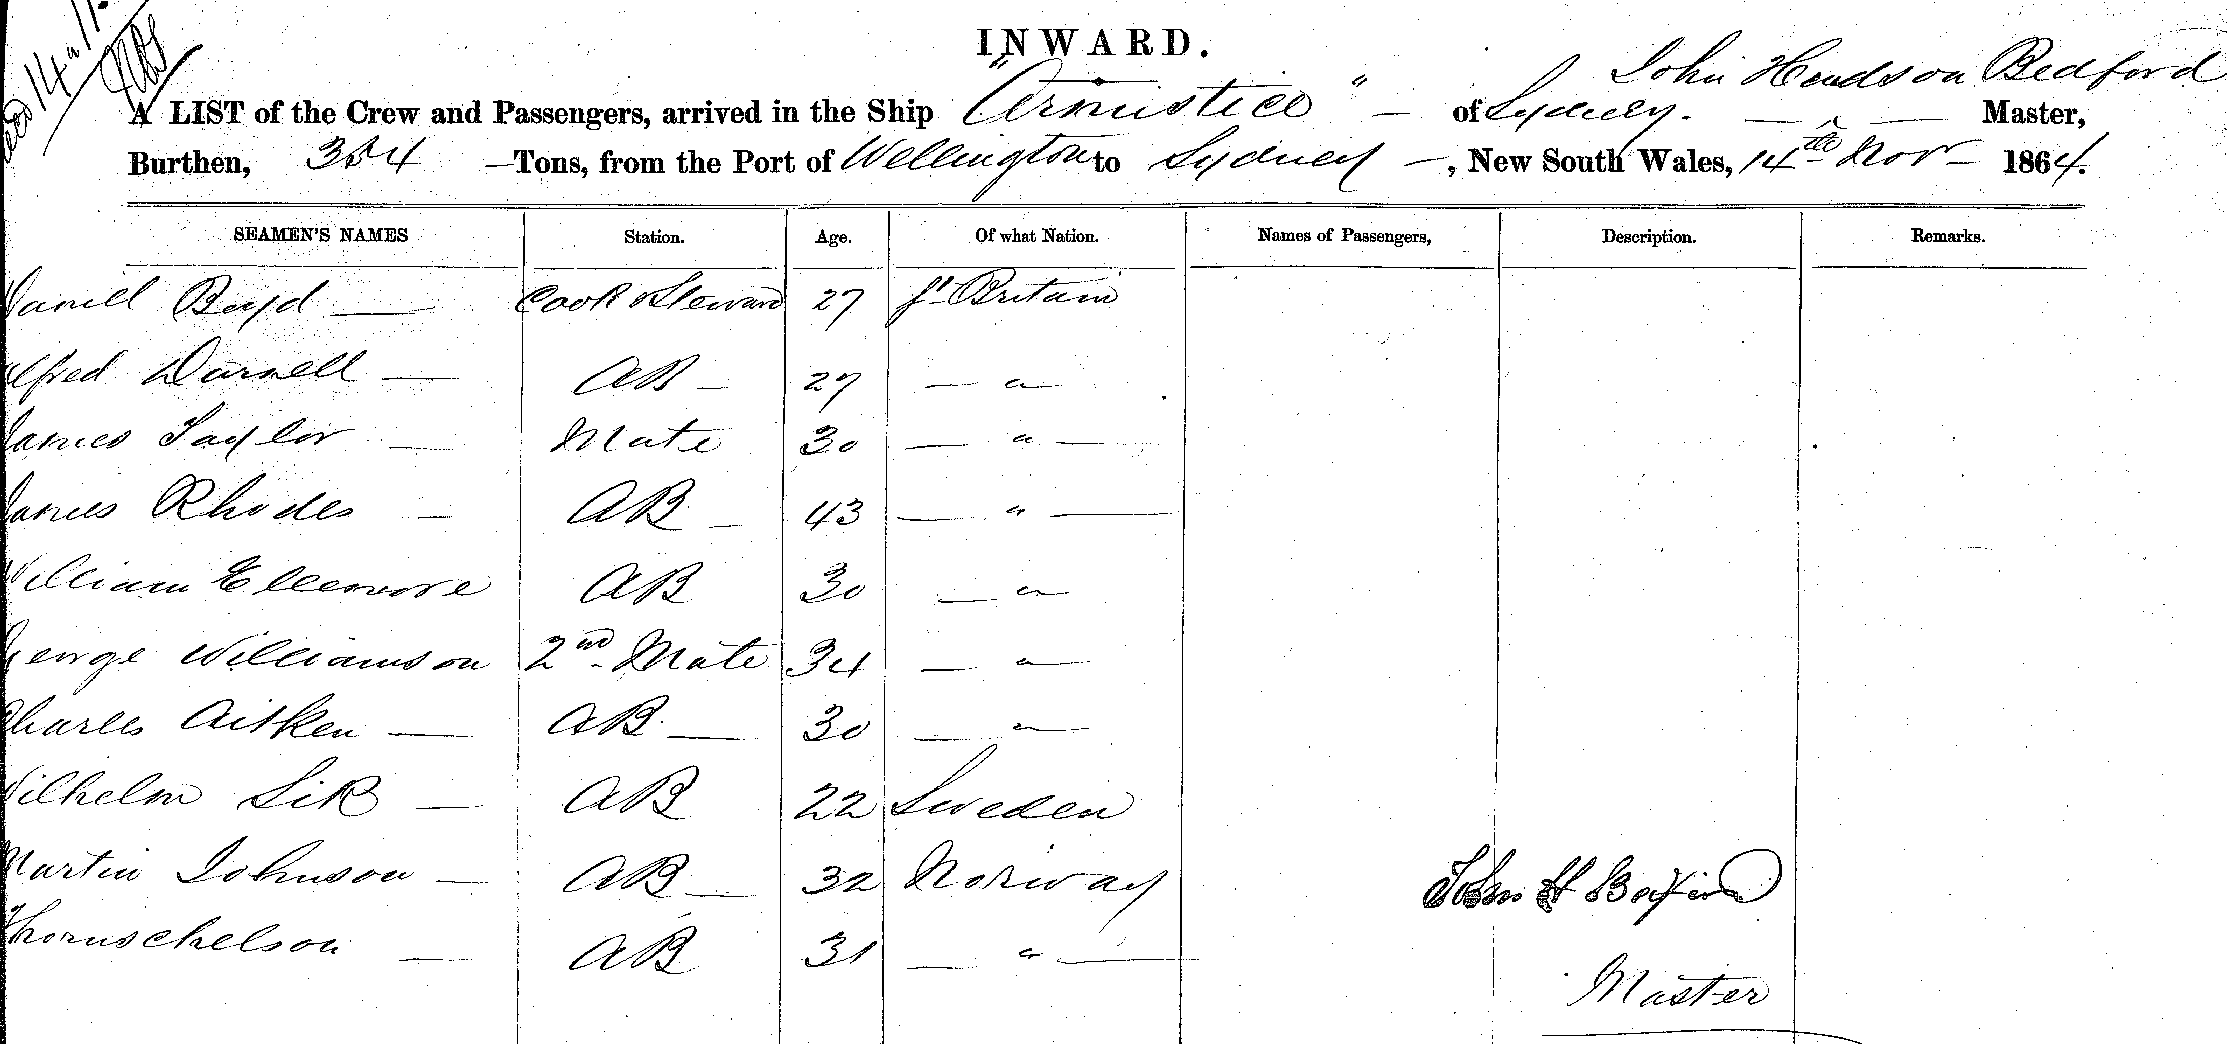 INWARD.
John Hendson Bedford
A LIST of the Crew and Passengers, arrived in the Ship "Armistice" — of Sydney. — Master,
Burthen, 354 — Tons, from the Port of Wellington to Sydney —, New South Wales, 14th Nov — 1864.
SEAMEN'S NAMES Station. Age. Of what Nation. Names of Passengers, Description. Remarks.
Daniell Boyd — Cook & Steward 27 Gt Britain
Alfred Darnell — AB — 27 — " —
James Taylor — Mate 30 — " —
James Rhodes — AB — 43 — " —
William Ellemore AB 30 — " —
George Williamson 2nd Mate 34 — " —
Charles Aitken — AB — 30 — " —
Wilhelm Sik — AB 22 Sweden
Martin Johnson — AB — 32 Norway
Thornschelson — AB 31 — " —
John H Bedford
Master